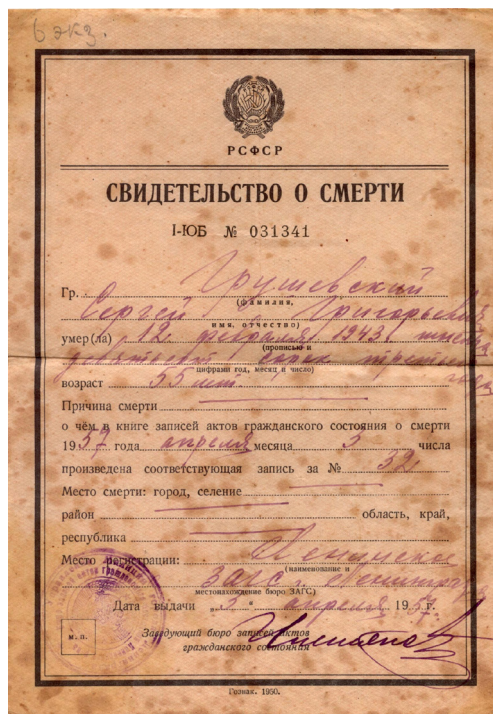 6 экз.
РСФСР
СВИДЕТЕЛЬСТВО О СМЕРТИ
I-ЮБ № 031341
Гр. Грушевский
(фамилия,
Сергей Григорьевич
имя, отчество)
умер(ла) 12 февраля 1943. тысяча
(прописью и
девятьсот сорок третьего
цифрами год, месяц и число)
года
возраст 55 лет.
Причина смерти
о чём в книге записей актов гражданского состояния о смерти
1957 года апреля месяца 3 числа
произведена соответствующая запись за № 32
Место смерти: город, селение
район область, край,
республика
Место регистрации: Ленинское
(наименование и
Загс г. Ленинграда
местонахождение бюро ЗАГС)
Дата выдачи апреля 1957г.
М. П.
Заведующий бюро записей актов
гражданского состояния
Гознак. 1950.